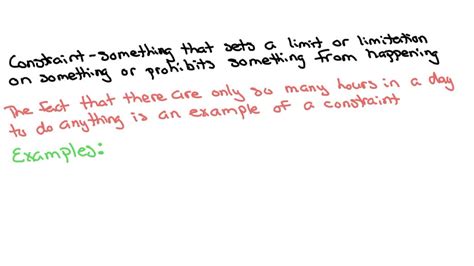 Constraint - something that sets a limit or limitation
on something or prohibits something from happening
The fact that there are only so many hours in a day
to do anything is an example of a constraint
Examples: